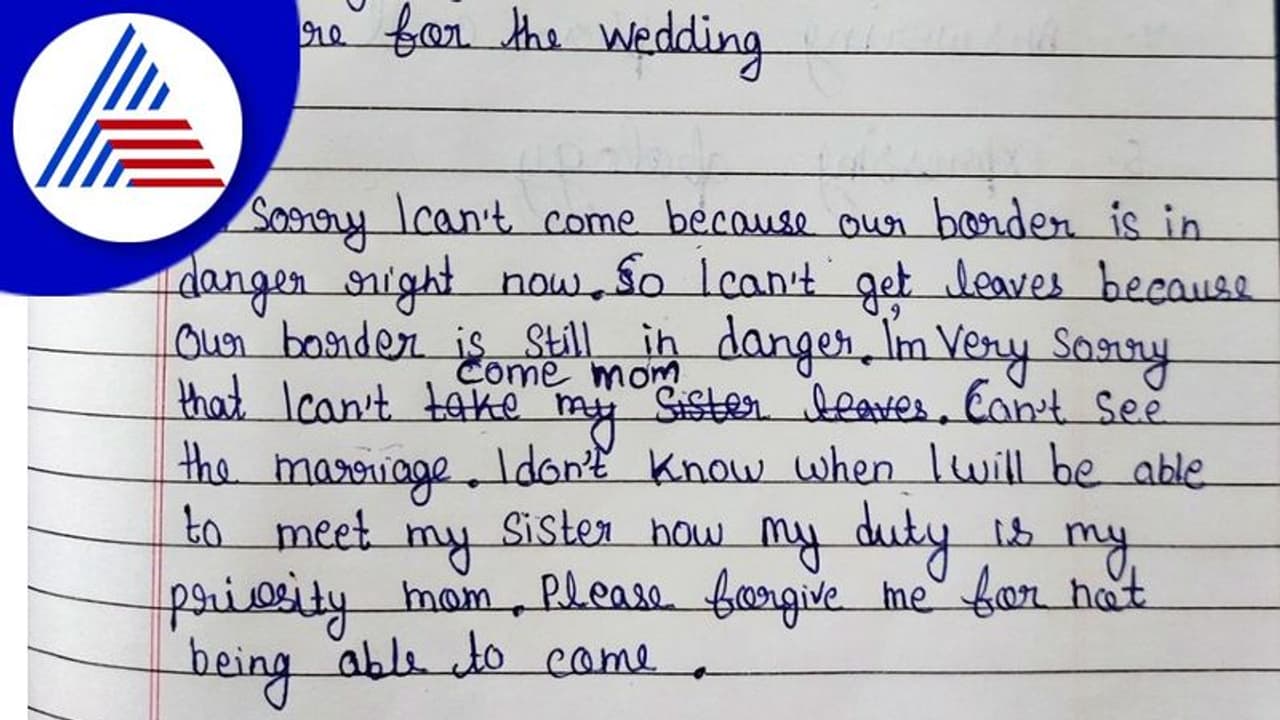 for the wedding
Sorry I can't come because our border is in
danger right now. So I can't get leaves because
our border is still in danger. I'm very sorry
come mom
that I can't take my sister leaves. Can't see
the marriage. I don't know when I will be able
to meet my sister now my duty is my
priority mom. Please forgive me for not
being able to come.